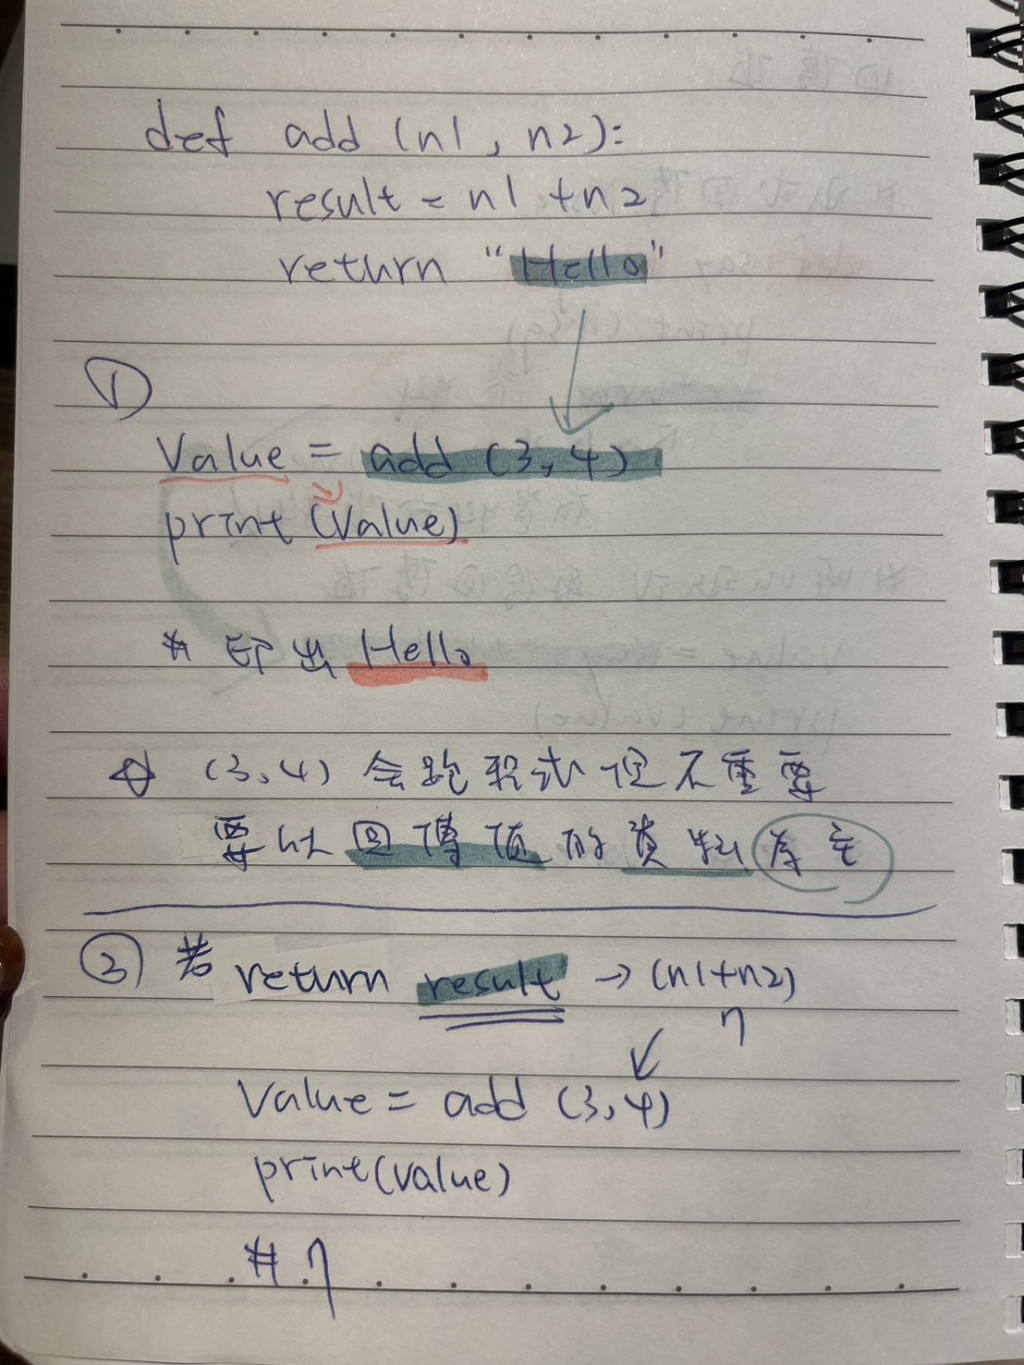 def add (n1, n2):
result = n1 + n2
return "Hello"
①
Value = add (3,4)
print (Value)
# 印出 Hello
(3,4) 会跑程式但不重要
要以回傳值的資料為主
② 若 return result → (n1+n2)
7
Value = add (3,4)
print(value)
# 7